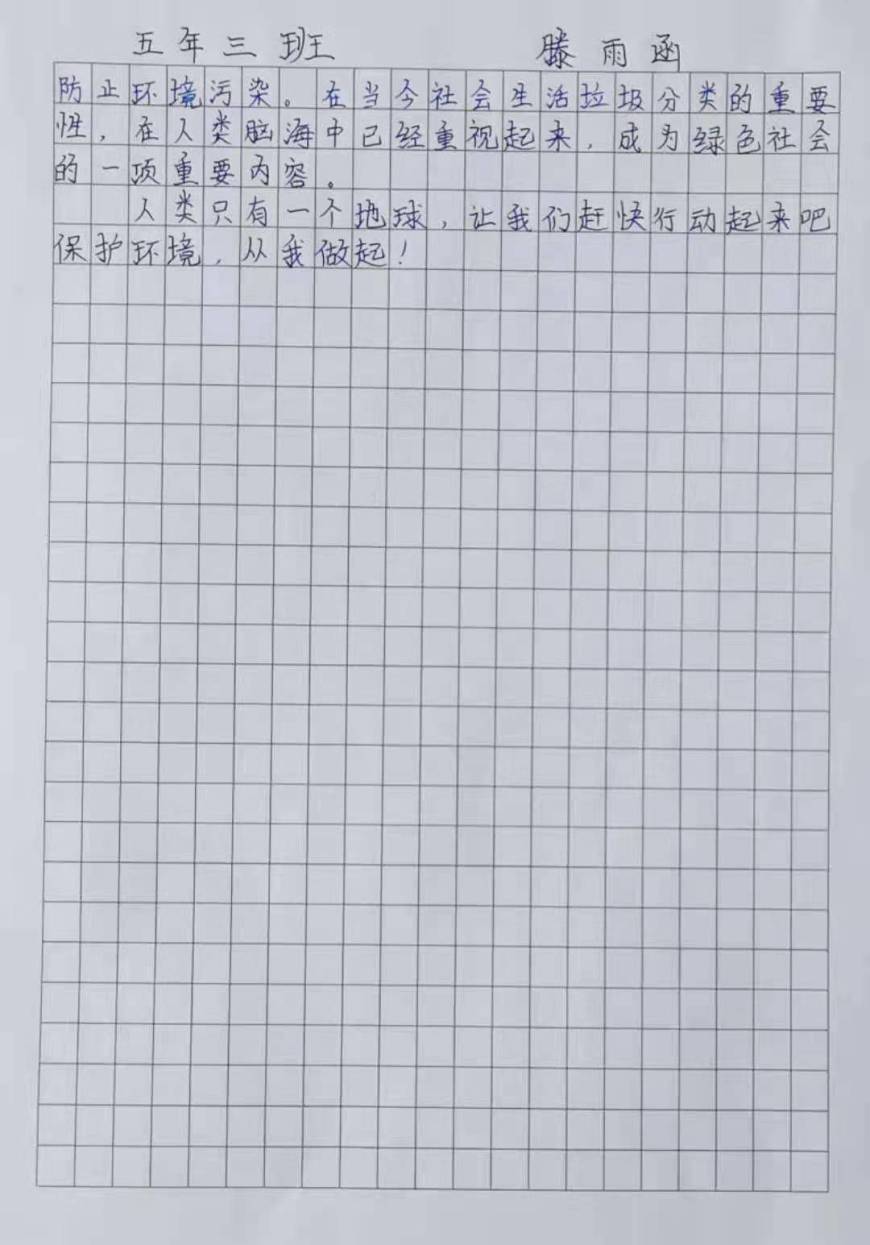 五年三班 滕雨函
防止环境污染。在当今社会生活垃圾分类的重要
性，在人类脑海中已经重视起来，成为绿色社会
的一项重要内容。
人类只有一个地球，让我们赶快行动起来吧
保护环境，从我做起！